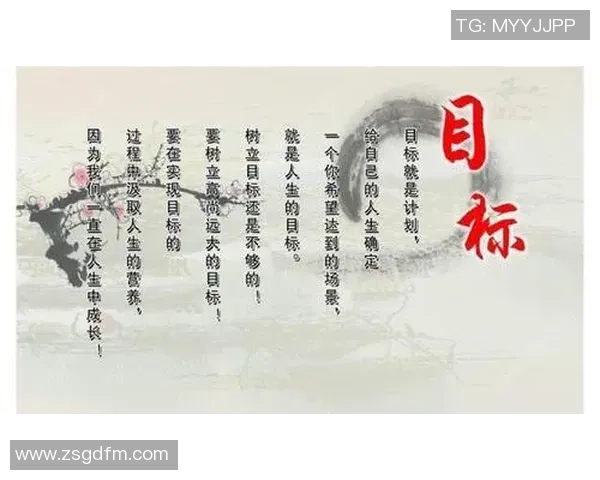 TG: MYYJJPP
目标
目标就是计划，
给自己的人生确定
一个你希望达到的场景，
就是人生的目标。
树立目标还是不够的！
要树立高尚远大的目标！
要在实现目标的
过程中汲取人生的营养，
因为我们一直在人生中成长！
www.zsgdfm.com